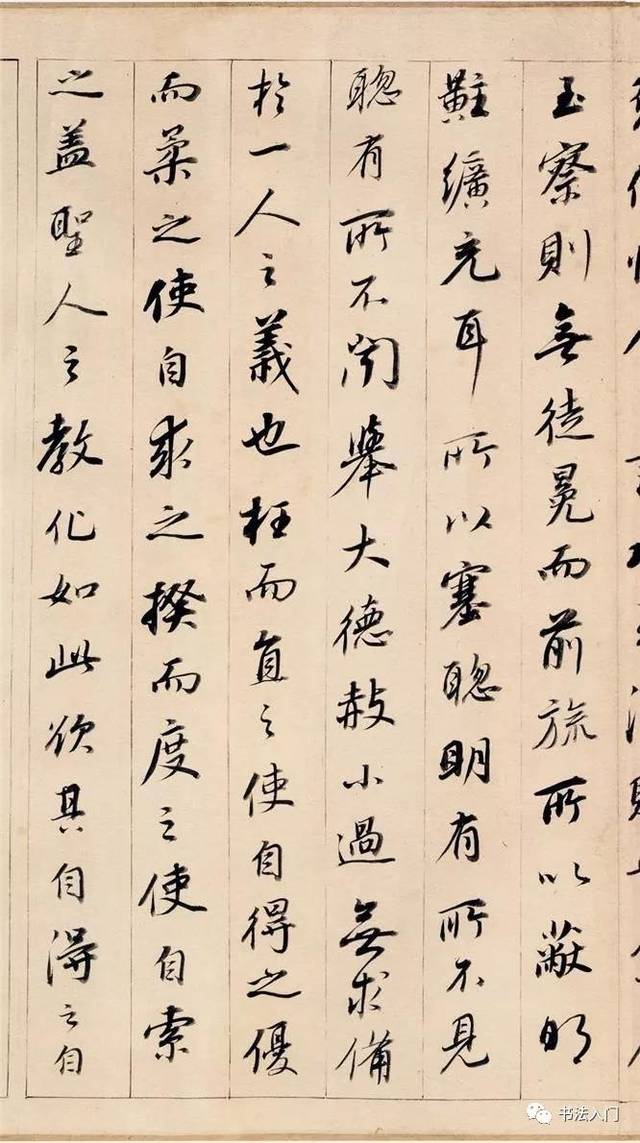 至察則無徒冕而前旒所以蔽明
黈纊充耳所以塞聰明有所不見
聰有所不聞舉大德赦小過無求備
於一人之義也枉而直之使自得之優
而柔之使自求之揆而度之使自索
之盖聖人之教化如此欲其自得之自
书法入门